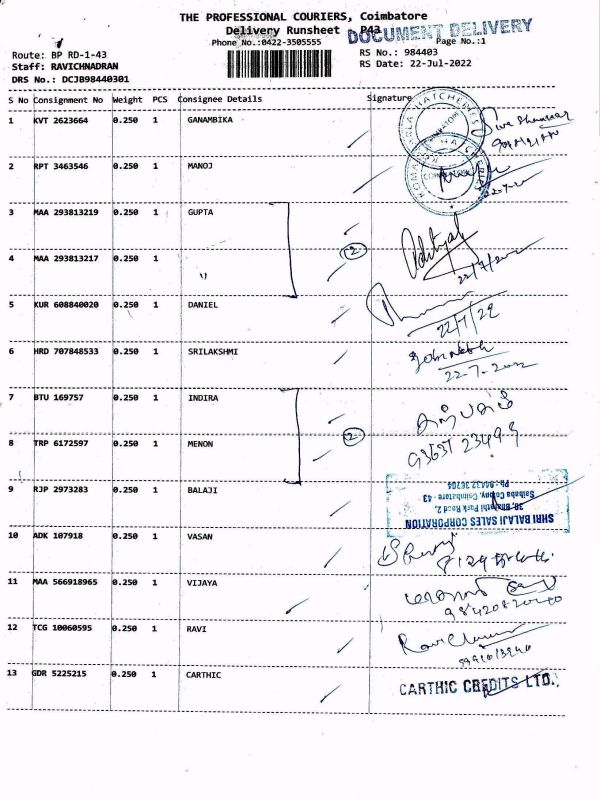 THE PROFESSIONAL COURIERS, Coimbatore
Delivery Runsheet P43
DOCUMENT DELIVERY
Phone No.:0422-3505555 Page No.:1
Route: BP RD-1-43 RS No.: 984403
Staff: RAVICHNADRAN RS Date: 22-Jul-2022
DRS No.: DCJB98440301
S No Consignment No Weight PCS Consignee Details Signature
1 KVT 2623664 0.250 1 GANAMBIKA
2 RPT 3463546 0.250 1 MANOJ
3 MAA 293813219 0.250 1 GUPTA
2
4 MAA 293813217 0.250 1 "
22/7/2022
5 KUR 608840020 0.250 1 DANIEL
22/7/22
6 HRD 707848533 0.250 1 SRILAKSHMI
22-7-2022
7 BTU 169757 0.250 1 INDIRA
2
8 TRP 6172597 0.250 1 MENON
9 RJP 2973283 0.250 1 BALAJI
SHRI BALAJI SALES CORPORATION
38, Bharathi Park Road 2,
Saibaba Colony, Coimbatore - 43
10 ADK 107918 0.250 1 VASAN
11 MAA 566918965 0.250 1 VIJAYA
12 TCG 10060595 0.250 1 RAVI
13 GDR 5225215 0.250 1 CARTHIC
CARTHIC CREDITS LTD.,